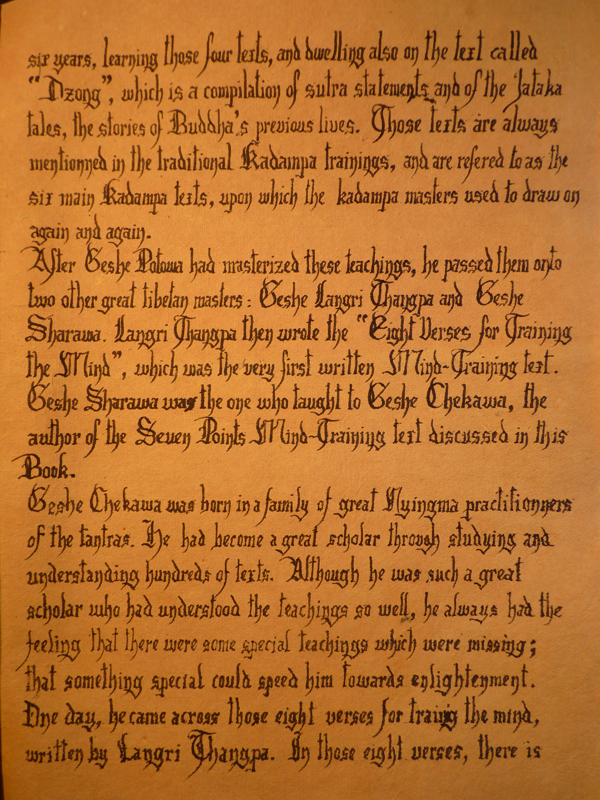 six years, learning those four texts, and dwelling also on the text called
"Dzong", which is a compilation of sutra statements and of the Jataka
tales, the stories of Buddha's previous lives. Those texts are always
mentionned in the traditional Kadampa trainings, and are refered to as the
six main Kadampa texts, upon which the kadampa masters used to draw on
again and again.
After Geshe Potowa had masterized these teachings, he passed them onto
two other great tibetan masters: Geshe Langri Thangpa and Geshe
Sharawa. Langri Thangpa then wrote the "Eight Verses for Training
the Mind", which was the very first written Mind-Training text.
Geshe Sharawa was the one who taught to Geshe Chekawa, the
author of the Seven Points Mind-Training text discussed in this
Book.
Geshe Chekawa was born in a family of great Nyingma practitionners
of the tantras. He had become a great scholar through studying and
understanding hundreds of texts. Although he was such a great
scholar who had understood the teachings so well, he always had the
feeling that there were some special teachings which were missing;
that something special could speed him towards enlightenment.
One day, he came across those eight verses for traing the mind,
written by Langri Thangpa. In those eight verses, there is